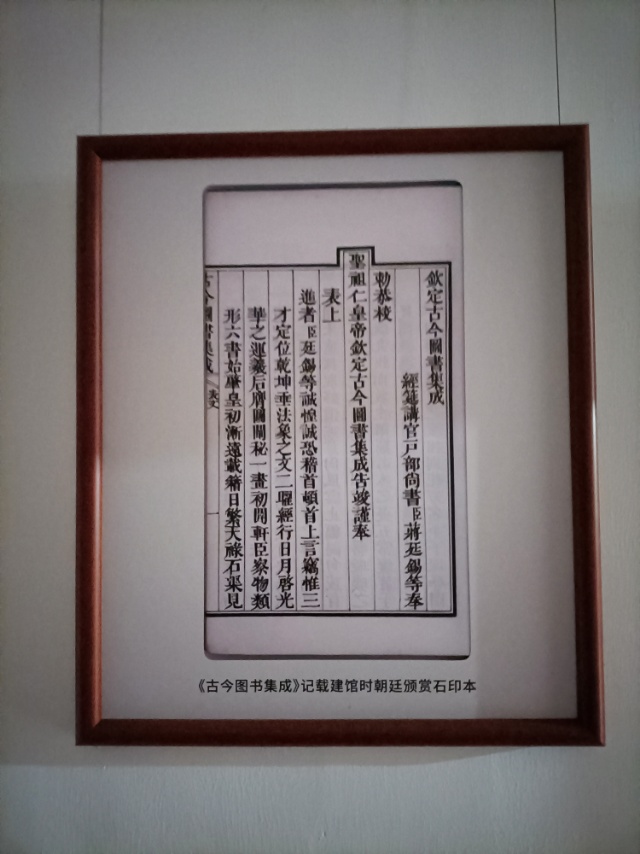 欽定古今圖書集成
經筵講官戶部尚書臣蔣廷錫等奉
勅恭校
聖祖仁皇帝欽定古今圖書集成告竣謹奉
表上
進者臣廷錫等誠惶誠恐稽首頓首上言竊惟三
才定位乾坤垂法象之文二曜經行日月啓光
華之運羲后膺圖闡秘一畫初開軒臣察物類
形六書始肇皇初漸遠載籍日繁天祿石渠見
古今圖書集成 表文 一
《古今图书集成》记载建馆时朝廷颁赏石印本